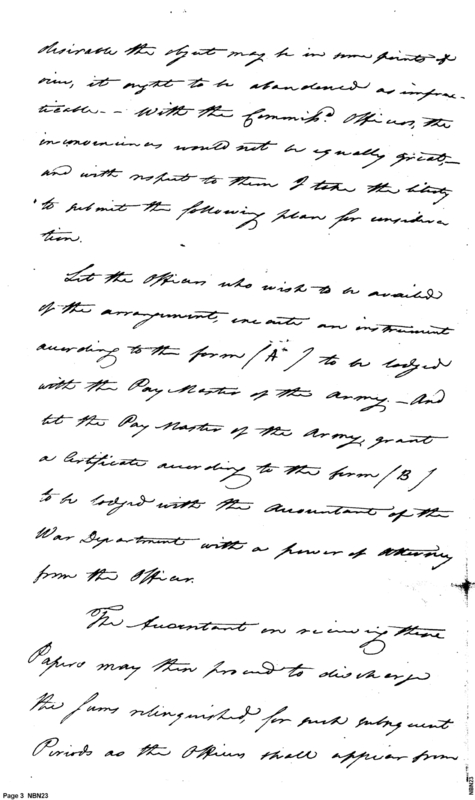 desirable the object may be in some points of
view, it ought to be abandoned as imprac-
ticable -- With the Commissd. Officers, the
inconveniences would not be equally great, -
and with respect to them I take the liberty
to submit the following plan for considera
tion.
Let the Officers who wish to be availed
of the arrangement, execute an instrument
according to the form [ "A" ] to be lodged
with the Pay Master of the Army. - And
let the Pay Master of the Army, grant
a Certificate according to the form [ B ]
to be lodged with the Accountant of the
War Department with a power of Attorney
from the Officer.
The Accountant on receiving these
Papers may then proceed to discharge
the sums relinquished, for such subsequent
Periods as the Officers shall appear from
Page 3 NBN23
NBN23